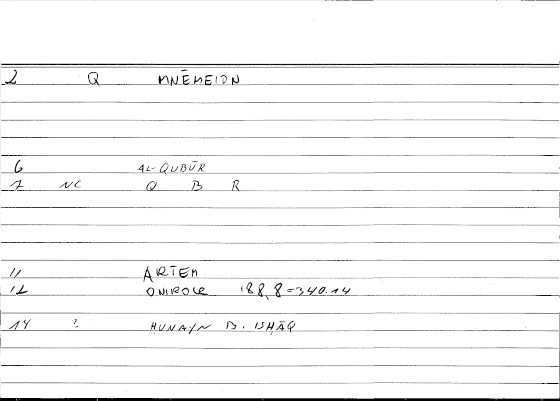 2 Q MNĒMEION
6 AL-QUBŪR
7 NC Q B R
11 ARTEM
12 ONIROCR 188,8=340.14
14 ? HUNAYN B. ISHĀQ